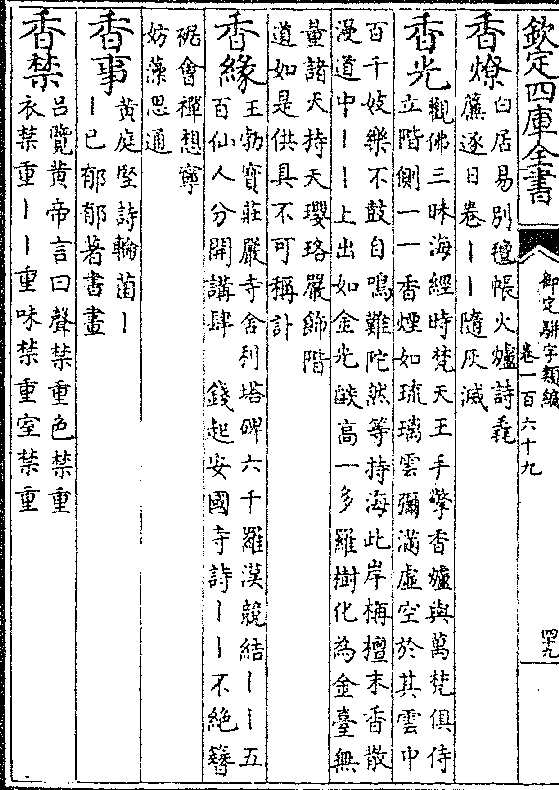 欽定四庫全書
御定駢字類編
卷一百六十九
四九
香燎
白居易別氊帳火爐詩毳
簾逐日卷丨丨隨灰滅
香光
觀佛三昧海經時梵天王手擎香爐與萬梵俱侍
立階側一一香煙如琉璃雲彌滿虛空於其雲中
百千妓樂不鼓自鳴難陀然等持海此岸栴檀末香散
漫道中丨丨上出如金光燄高一多羅樹化為金臺無
量諸天持天瓔珞嚴飾階
道如是供具不可稱計
香緣
王勃寶莊嚴寺舍利塔碑六千羅漢競結丨丨五
百仙人分開講肆 錢起安國寺詩丨丨不絕簪
裾會禪想寧
妨藻思通
香事
黃庭堅詩輪菌丨
丨已郁郁著書畫
香禁
呂覽黃帝言曰聲禁重色禁重
衣禁重丨丨重味禁重室禁重